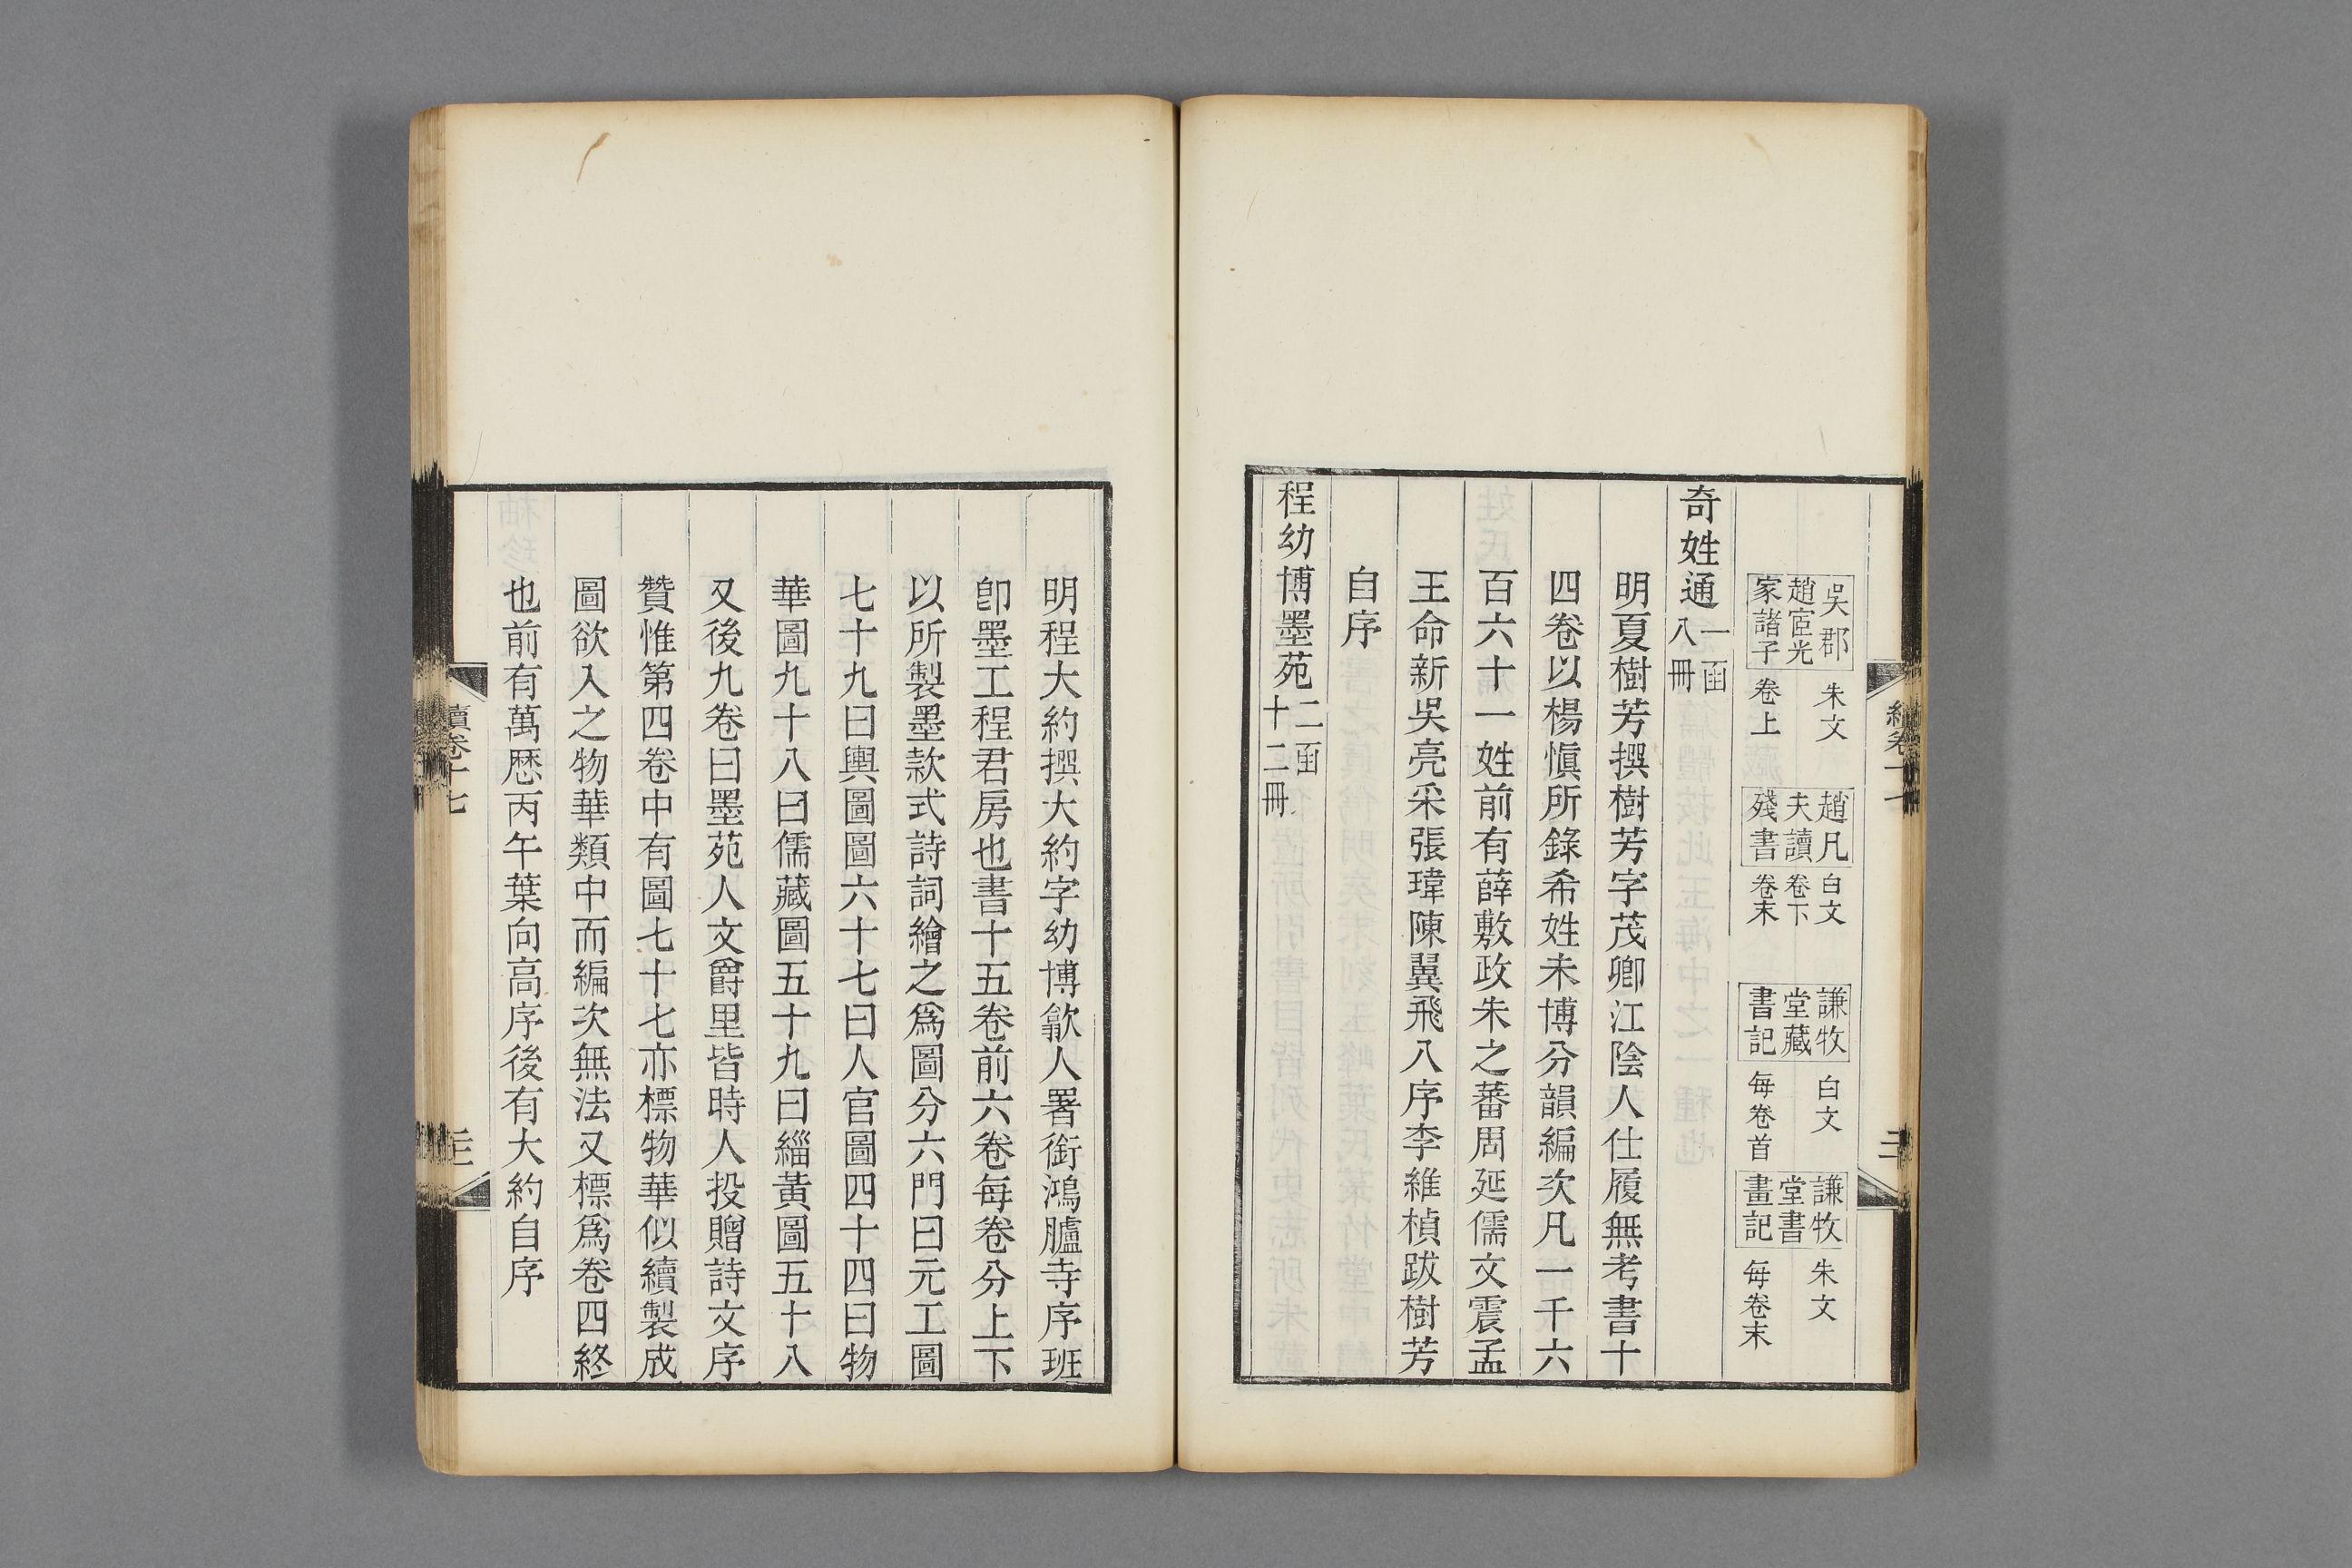 吳郡趙宧光家諸子 朱文 卷上 趙凡夫讀殘書 白文 卷下卷末 謙牧堂藏書記 白文 每卷首 謙牧堂書畫記 朱文 每卷末
奇姓通 一函八冊
明夏樹芳撰樹芳字茂卿江陰人仕履無考書十
四卷以楊愼所錄希姓未博分韻編次凡一千六
百六十一姓前有薛敷政朱之蕃周延儒文震孟
王命新吳亮采張瑋陳翼飛八序李維楨跋樹芳
自序
程幼博墨苑 二函十二冊
明程大約撰大約字幼博歙人署銜鴻臚寺序班
卽墨工程君房也書十五卷前六卷每卷分上下
以所製墨款式詩詞繪之爲圖分六門曰元工圖
七十九曰輿圖圖六十七曰人官圖四十四曰物
華圖九十八曰儒藏圖五十九曰緇黃圖五十八
又後九卷曰墨苑人文爵里皆時人投贈詩文序
贊惟第四卷中有圖七十七亦標物華似續製成
圖欲入之物華類中而編次無法又標爲卷四終
也前有萬厯丙午葉向高序後有大約自序
續卷十七